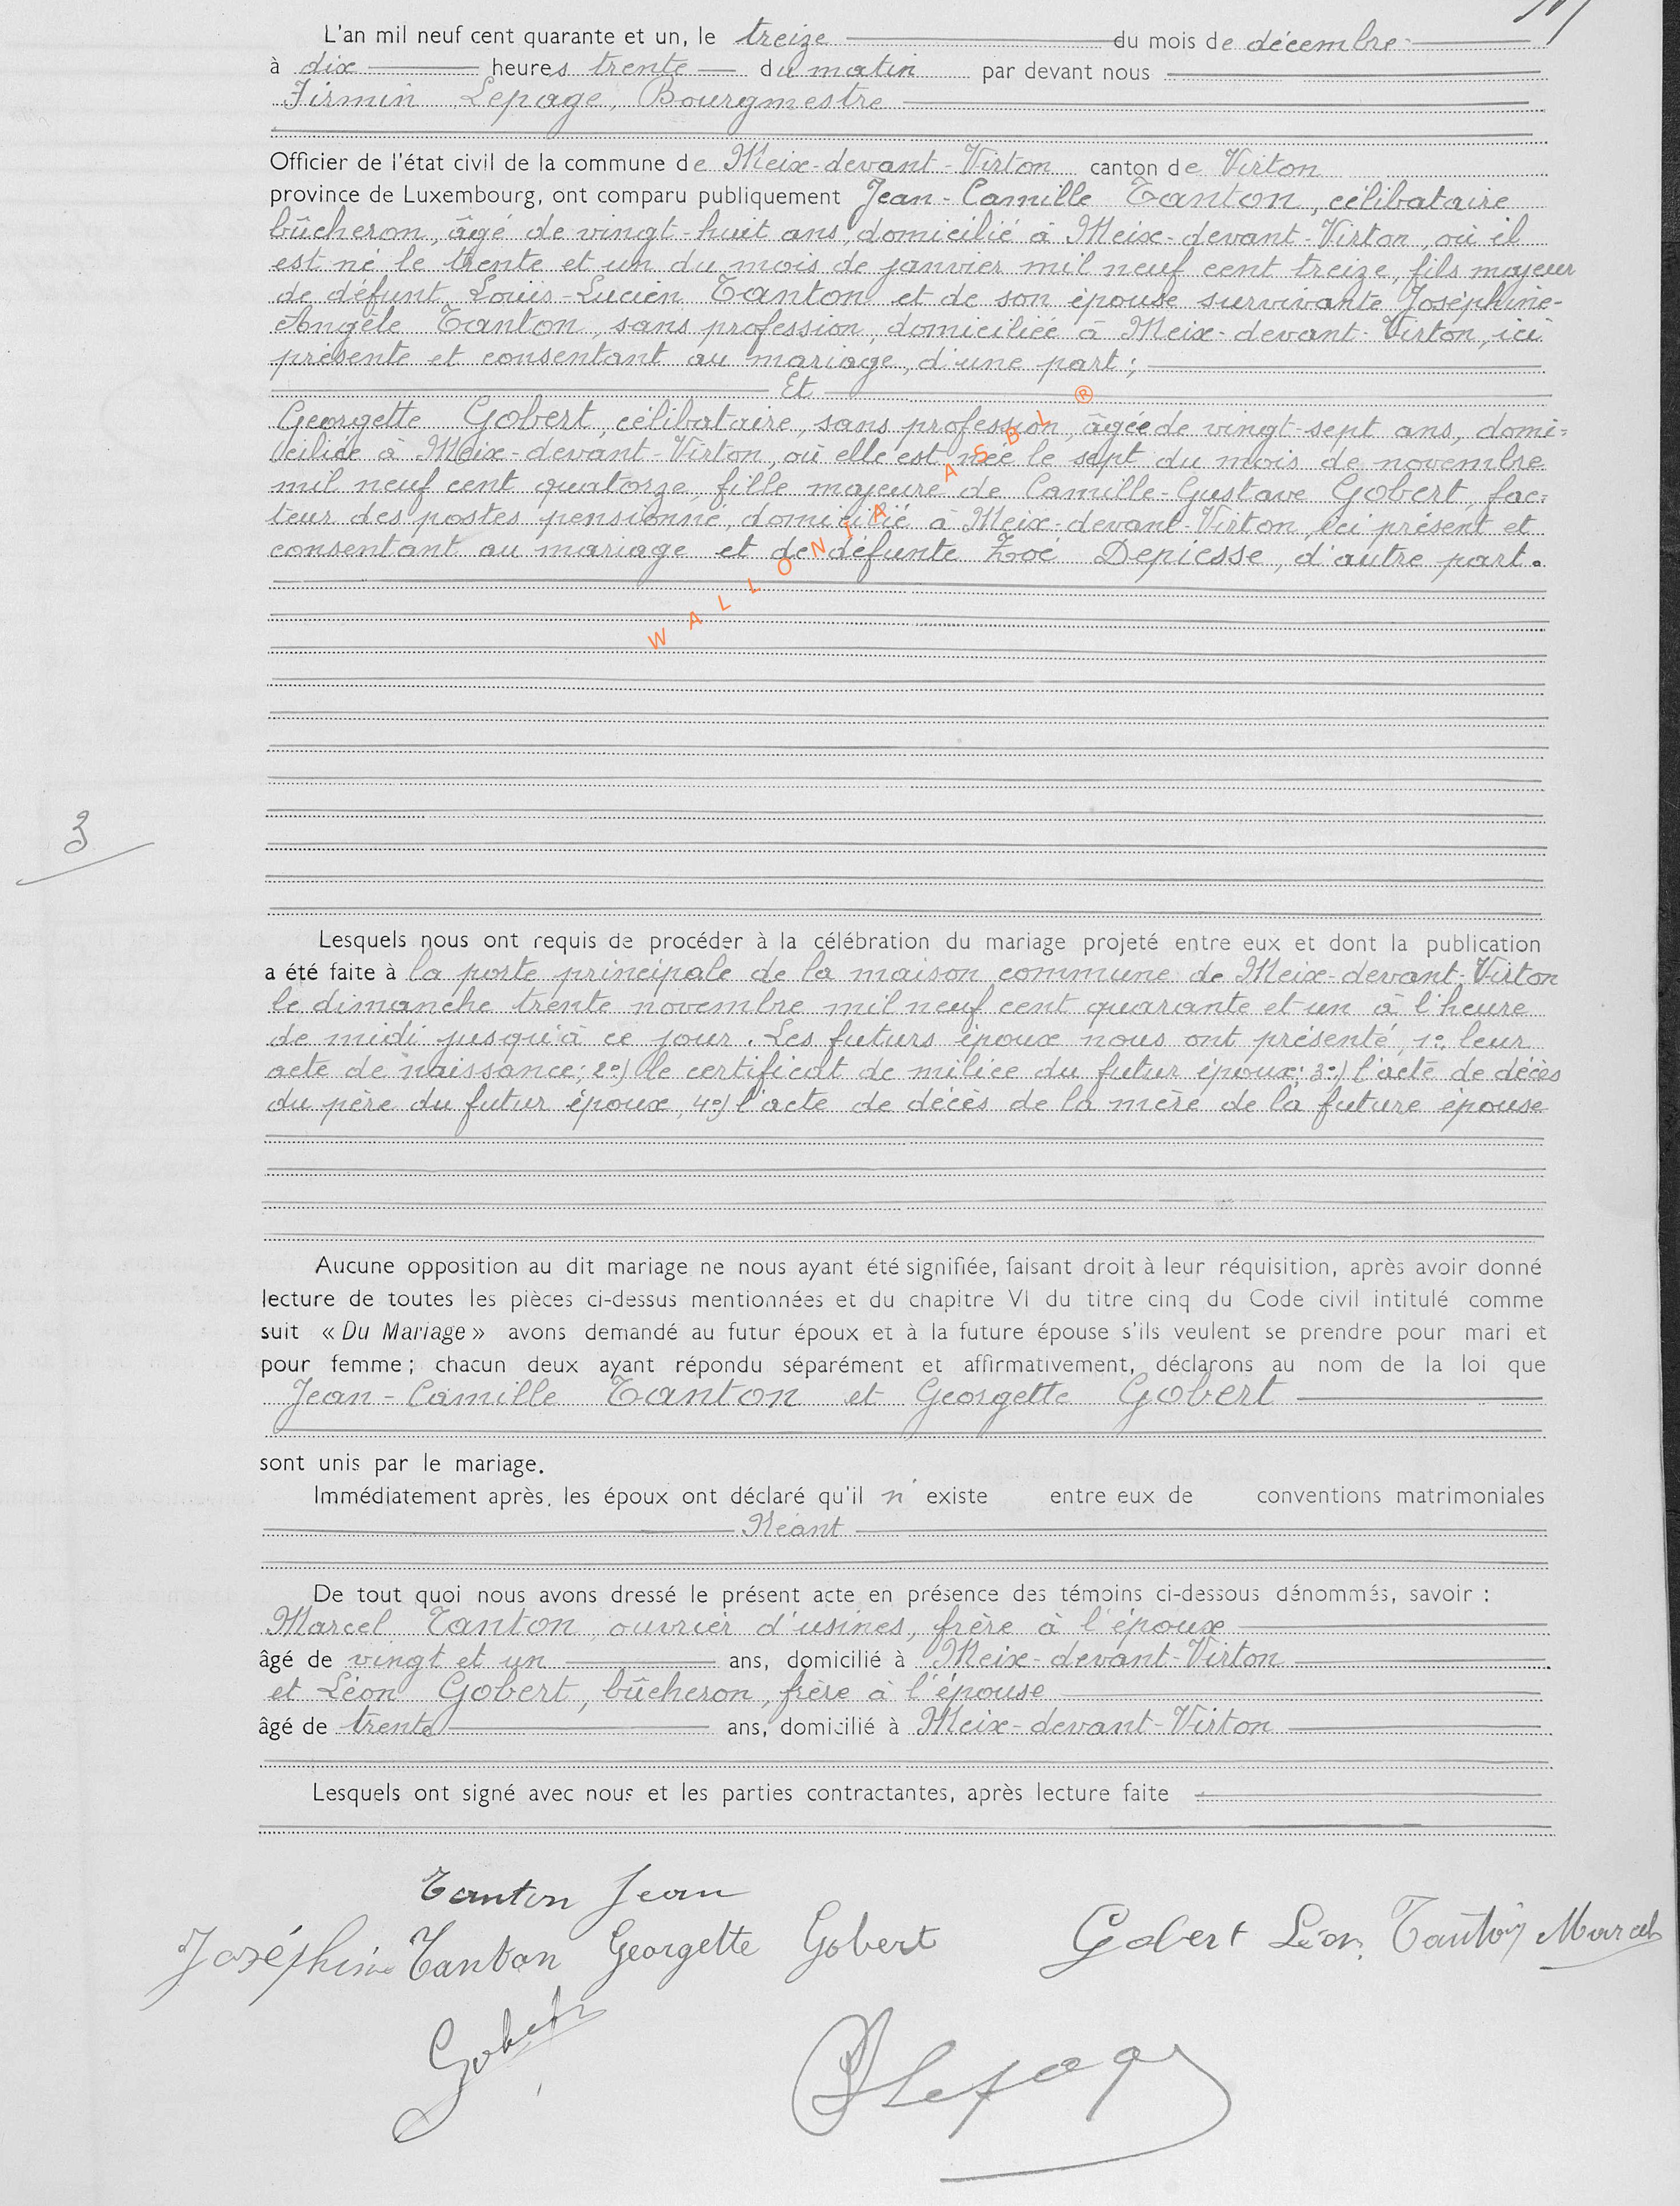 L'an mil neuf cent quarante et un, le treize du mois de décembre
à dix heures trente du matin par devant nous
Firmin Lepage, Bourgmestre
Officier de l'état civil de la commune de Meix-devant-Virton canton de Virton
province de Luxembourg, ont comparu publiquement Jean-Camille Tanton, célibataire
bûcheron, âgé de vingt-huit ans, domicilié à Meix-devant-Virton, où il
est né le trente et un du mois de janvier mil neuf cent treize, fils majeur
de défunt Louis-Lucien Tanton et de son épouse survivante Joséphine-
Angèle Tanton, sans profession, domiciliée à Meix-devant-Virton, ici
présente et consentant au mariage, d'une part;
Et
Georgette Gobert, célibataire, sans profession, âgée de vingt-sept ans, domi=
ciliée à Meix-devant-Virton, où elle est née le sept du mois de novembre
mil neuf cent quatorze, fille majeure de Camille-Gustave Gobert, fac=
teur des postes pensionné, domicilié à Meix-devant-Virton, ici présent et
consentant au mariage et de défunte Zoé Depiesse, d'autre part.
WALLONIA ASBL ®
3
Lesquels nous ont requis de procéder à la célébration du mariage projeté entre eux et dont la publication
a été faite à la porte principale de la maison commune de Meix-devant-Virton
le dimanche trente novembre mil neuf cent quarante et un à l'heure
de midi jusqu'à ce jour. Les futurs époux nous ont présenté, 1º leur
acte de naissance; 2º) le certificat de milice du futur époux; 3º) l'acte de décès
du père du futur époux, 4º) l'acte de décès de la mère de la future épouse
Aucune opposition au dit mariage ne nous ayant été signifiée, faisant droit à leur réquisition, après avoir donné
lecture de toutes les pièces ci-dessus mentionnées et du chapitre VI du titre cinq du Code civil intitulé comme
suit « Du Mariage » avons demandé au futur époux et à la future épouse s'ils veulent se prendre pour mari et
pour femme; chacun deux ayant répondu séparément et affirmativement, déclarons au nom de la loi que
Jean-Camille Tanton et Georgette Gobert
sont unis par le mariage.
Immédiatement après, les époux ont déclaré qu'il n' existe entre eux de conventions matrimoniales
Néant
De tout quoi nous avons dressé le présent acte en présence des témoins ci-dessous dénommés, savoir :
Marcel Tanton, ouvrier d'usines, frère à l'époux
âgé de vingt et un ans, domicilié à Meix-devant-Virton
et Léon Gobert, bûcheron, frère à l'épouse
âgé de trente ans, domicilié à Meix-devant-Virton
Lesquels ont signé avec nous et les parties contractantes, après lecture faite
Tanton Jean
Joséphine Tanton Georgette Gobert Gobert Léon Tanton Marcel
Gobert
Lepage